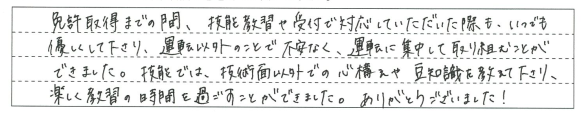 免許取得までの間、技能教習や受付で対応していただいた際も、いつでも
優しくして下さり、運転以外のことで不安なく、運転に集中して取り組むことが
できました。技能では、技術面以外での心構えや豆知識を教えて下さり、
楽しく教習の時間を過ごすことができました。ありがとうございました!